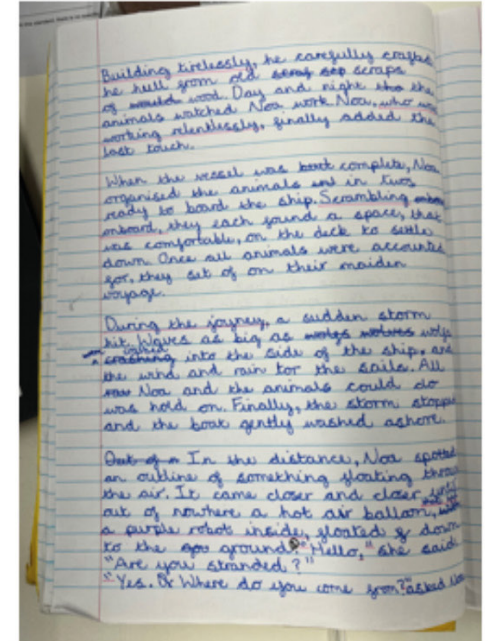 Building tirelessly, he carefully crafted
the hull from old scrap scraps
of would wood. Day and night the
animals watched Noa work. Noa, who was
working relentlessly, finally added the
last touch.
When the vessel was boat complete, Noa
organised the animals in twos
ready to board the ship. Scrambling
onboard, they each found a space, that
was comfortable, on the deck to settle
down. Once all animals were accounted
for, they set of on their maiden
voyage.
During the journey, a sudden storm
hit. Waves as big as wolfs wolves wolfs
crashing into the side of the ship, and
the wind and rain tor the sails. All
Noa and the animals could do
was hold on. Finally, the storm stopped
and the boat gently washed ashore.
Out of a In the distance, Noa spotted
an outline of something floating throu
the air. It came closer and closer until
out of nowhere a hot air balloon,
a purple robot inside, floated down
to the ground. "Hello," she said.
"Are you stranded?"
"Yes. Where do you come from?" asked Noa